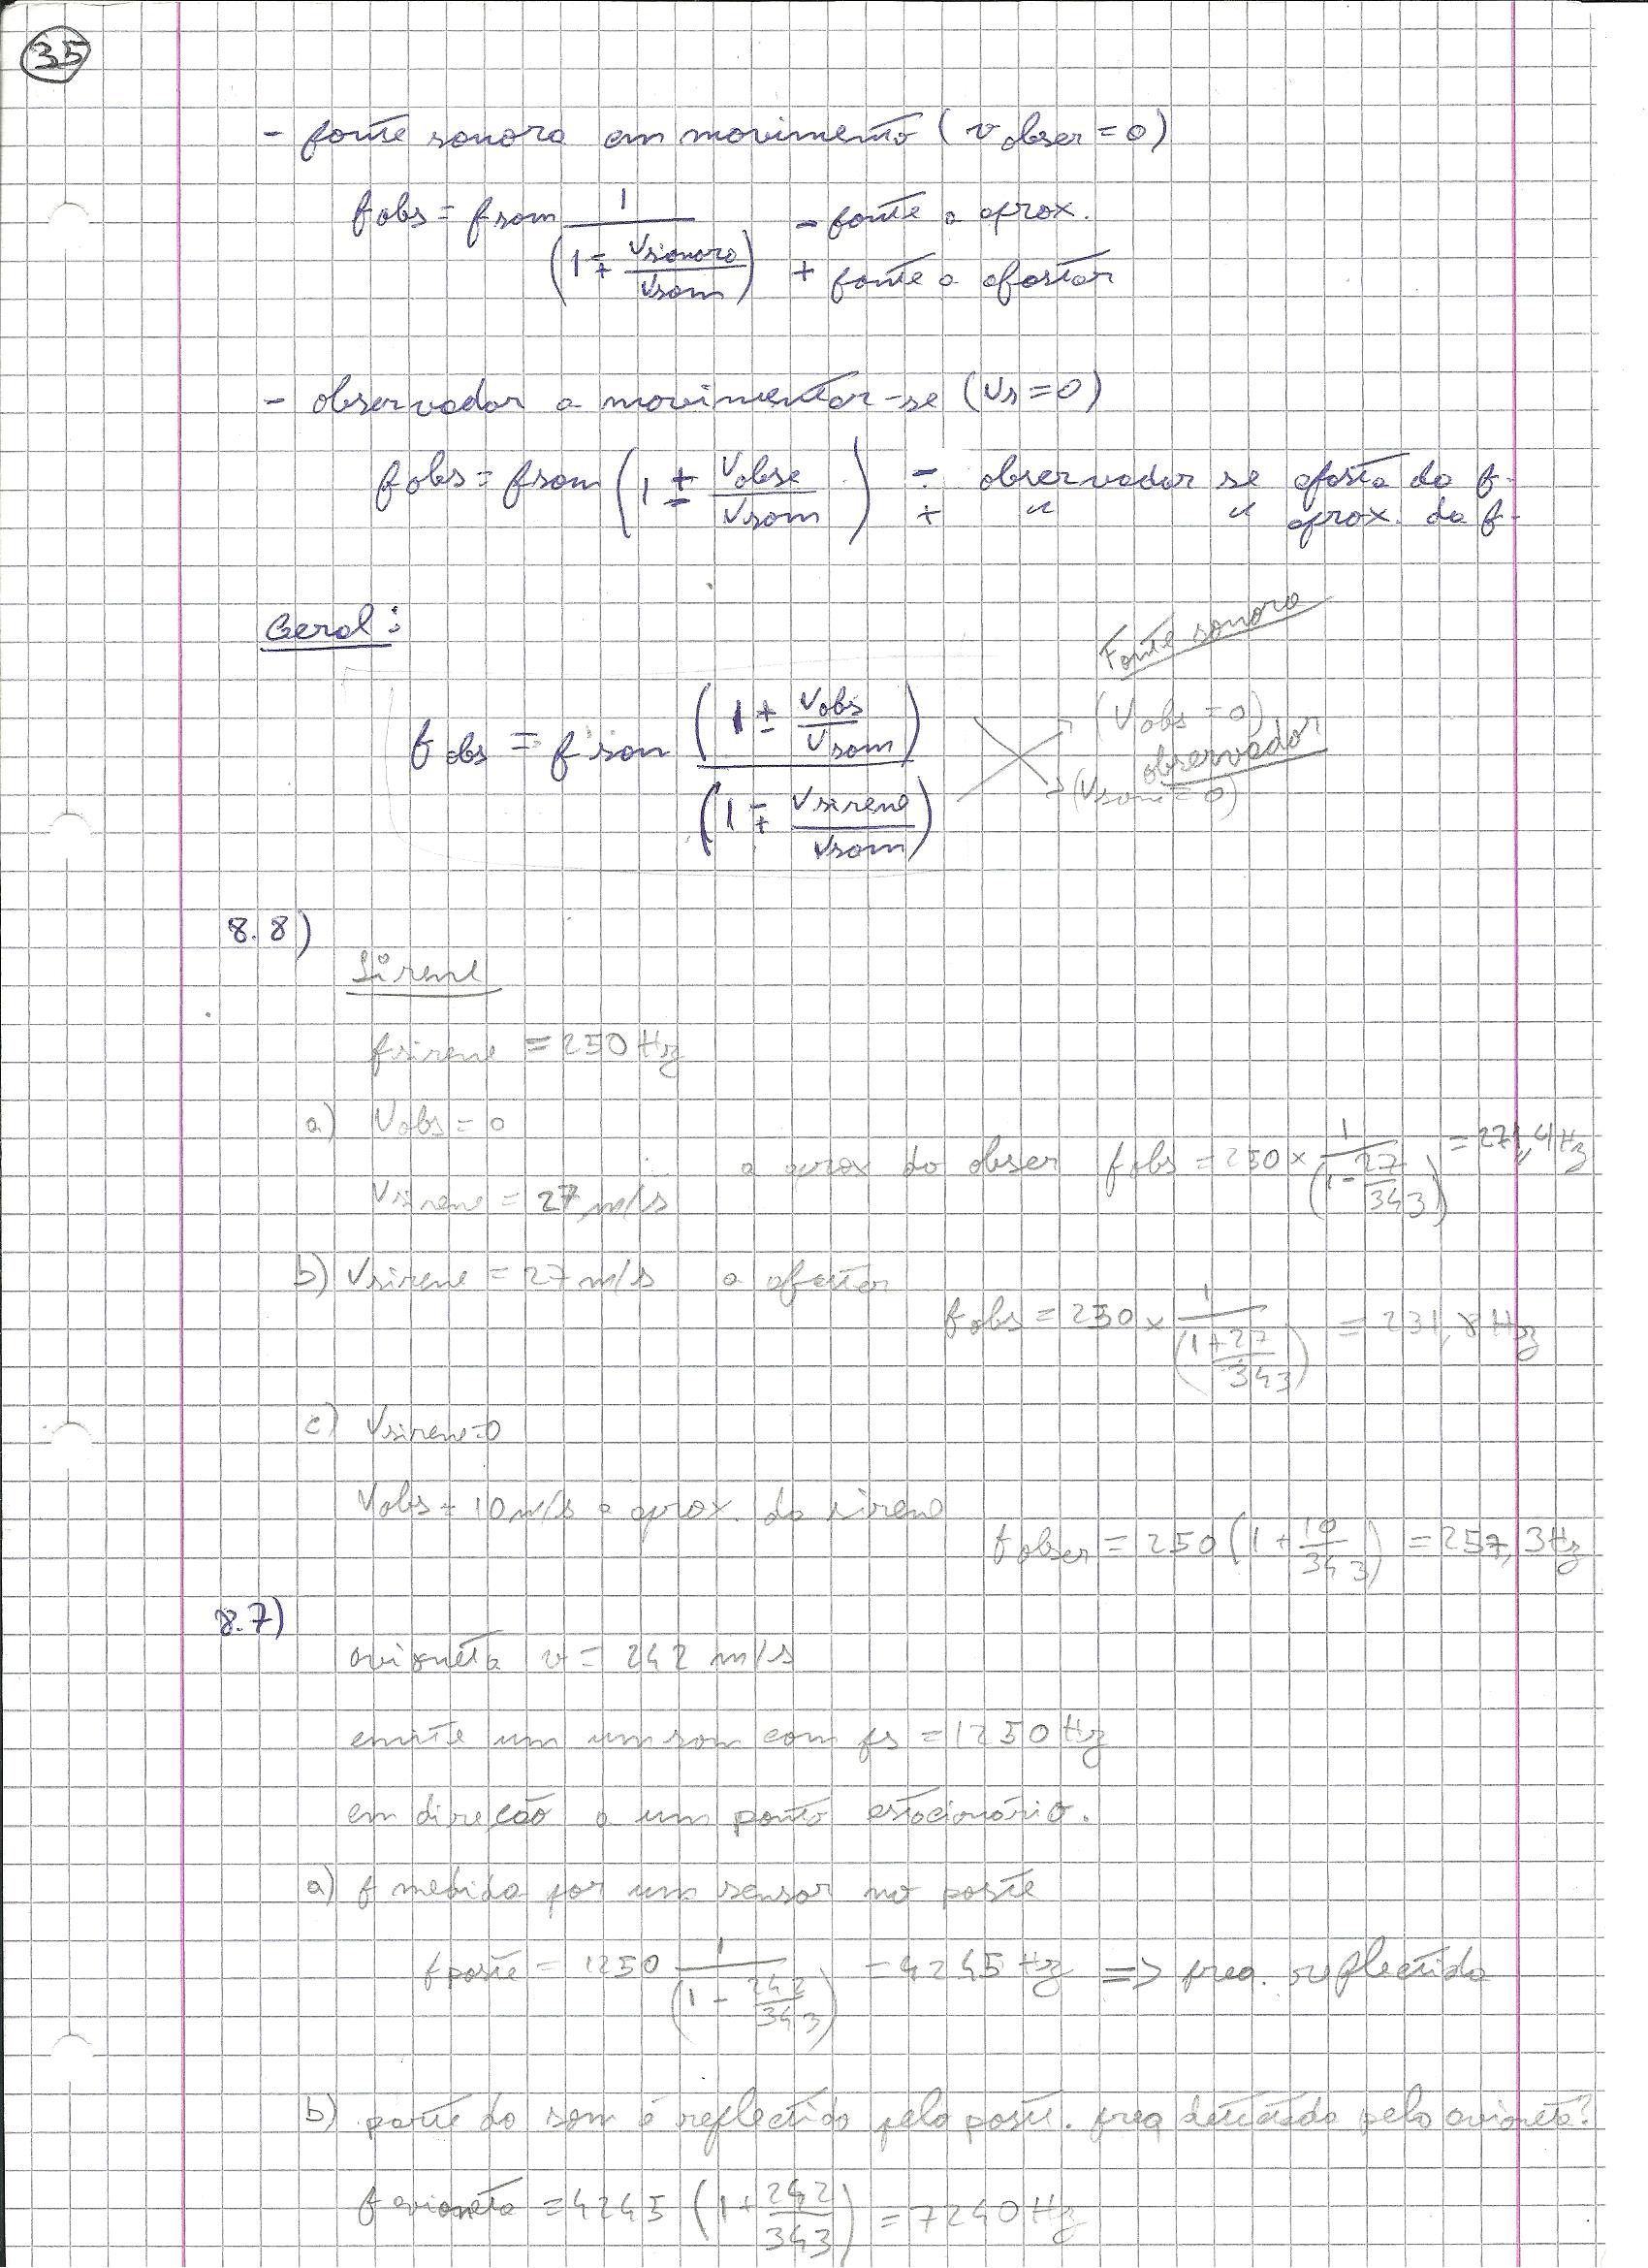 35
- fonte sonora em movimento (v obser = 0)
f obs = f som 1 / (1 ∓ v sonora / v som) - fonte a aprox.
+ fonte a afastar
- observador a movimentar-se (vs = 0)
f obs = f som (1 ± v obse / v som) - observador se afasta da f.
+ " " aprox. da f.
Geral:
Fonte sonora
f obs = f son (1 ± v obs / v som) / (1 ∓ v sirene / v som)
(v obs = 0)
observador
(v son = 0)
8.8)
Sirene
f sirene = 250 Hz
a) v obs = 0
a aprox do obser f obs = 250 × 1 / (1 - 27 / 343) = 271,4 Hz
v sirene = 27 m/s
b) v sirene = 27 m/s a afastar
f obs = 250 × 1 / (1 + 27 / 343) = 231,8 Hz
c) v sirene = 0
v obs = 10 m/s a aprox. da sirene
f obser = 250 (1 + 10 / 343) = 257,3 Hz
8.7)
avioneta v = 242 m/s
emite um um som com fs = 1250 Hz
em direção a um ponto estacionário.
a) f medida por um sensor no poste
f poste = 1250 1 / (1 - 242 / 343) = 4245 Hz => freq. reflectida
b) parte do som é reflectido pelo poste. freq detectada pela avioneta?
f avioneta = 4245 (1 + 242 / 343) = 7240 Hz